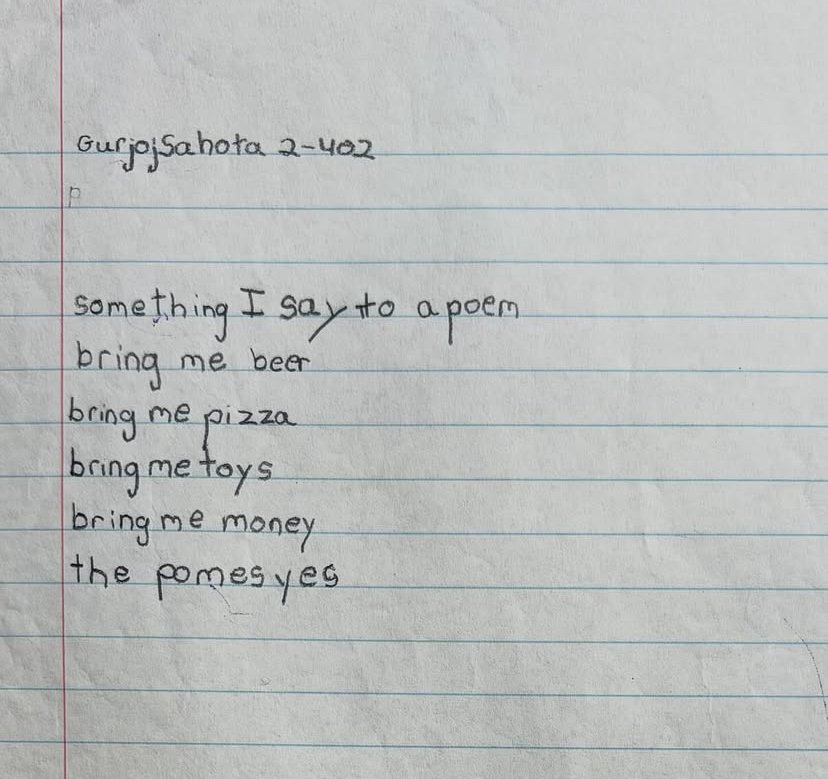 Gurjoj Sahota 2-402
p
something I say to a poem
bring me beer
bring me pizza
bring me toys
bring me money
the pomes yes